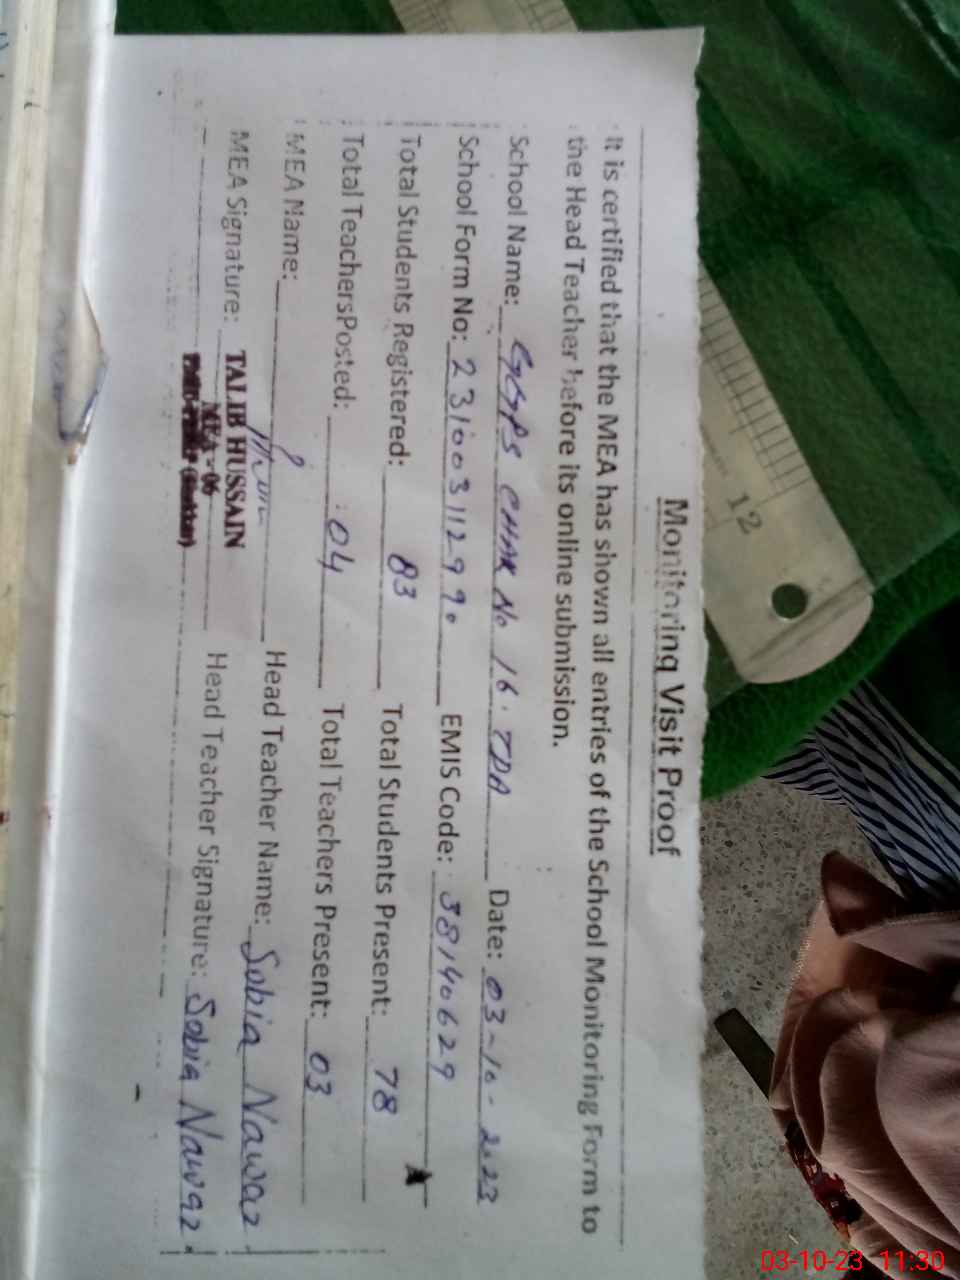 Monitoring Visit Proof
It is certified that the MEA has shown all entries of the School Monitoring Form to
the Head Teacher before its online submission.
School Name: GGPS CHAK No 16. TDA Date: 03-10-2023
School Form No: 23100311299০ EMIS Code: 38140629
Total Students Registered: 83 Total Students Present: 78
Total TeachersPosted: 04 Total Teachers Present: 03
MEA Name: Head Teacher Name: Sobia Nawaz
MEA Signature: TALIB HUSSAIN Head Teacher Signature: Sobia Nawaz
MEA-06
12
03-10-23 11:30